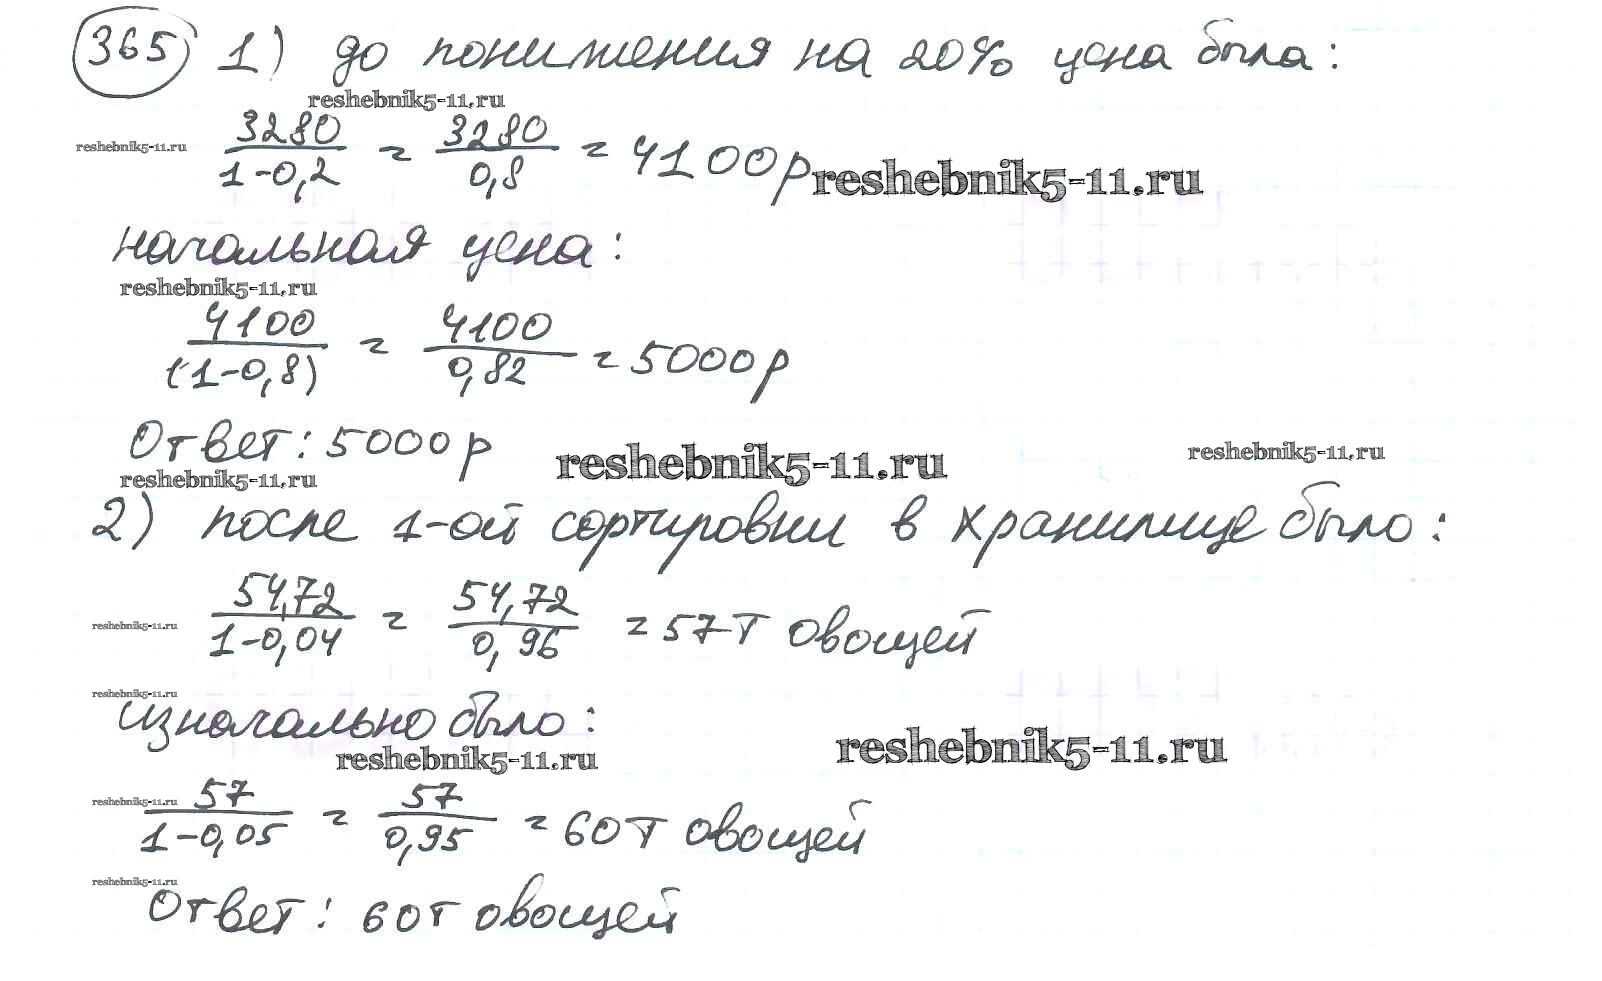 365 1) до понижения на 20% цена была:
reshebnik5-11.ru
reshebnik5-11.ru
3280/1-0,2 = 3280/0,8 = 4100р
reshebnik5-11.ru
начальная цена:
reshebnik5-11.ru
4100/(1-0,8) = 4100/0,82 = 5000р
Ответ: 5000р
reshebnik5-11.ru
reshebnik5-11.ru
reshebnik5-11.ru
2) после 1-ой сортировки в хранилище было:
54,72/1-0,04 = 54,72/0,96 = 57т овощей
reshebnik5-11.ru
reshebnik5-11.ru
изначально было:
reshebnik5-11.ru
reshebnik5-11.ru
reshebnik5-11.ru
57/1-0,05 = 57/0,95 = 60т овощей
reshebnik5-11.ru
Ответ: 60т овощей